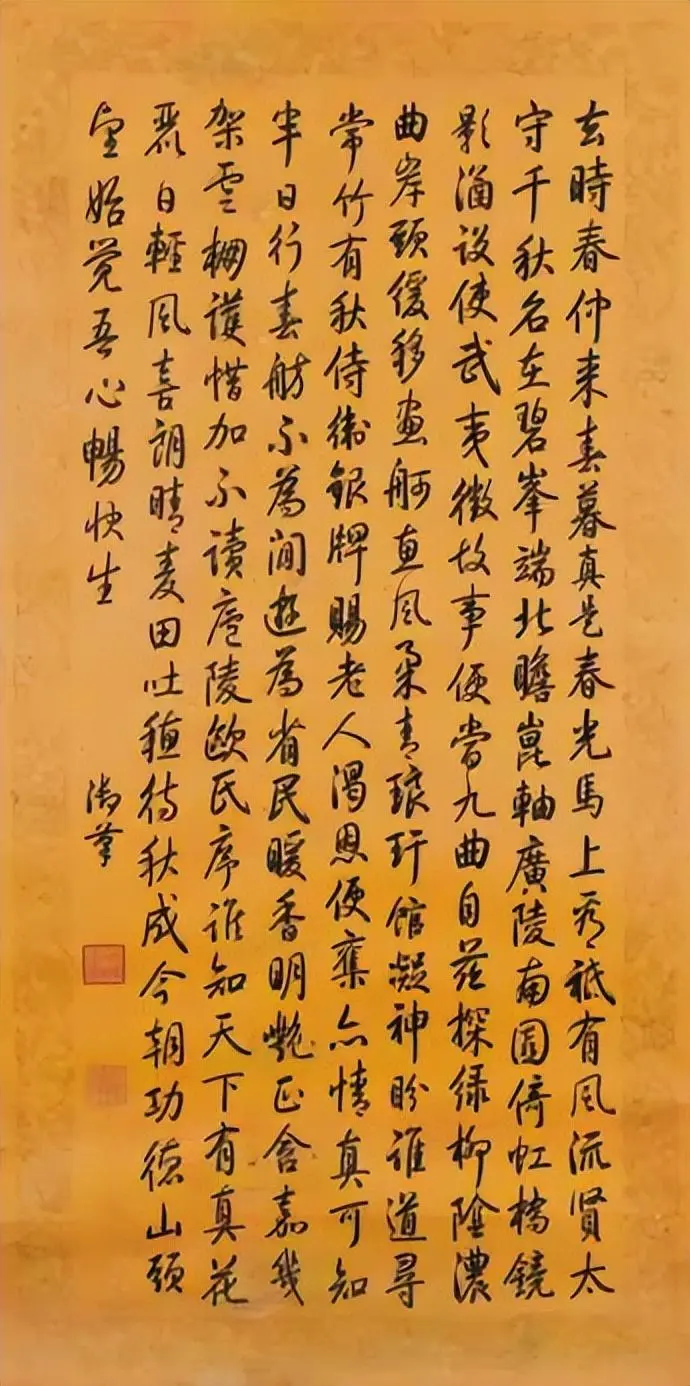 去時春仲来春暮真是春光馬上看祗有風流賢太
守千秋名在碧峯端北瞻崑軸廣陵南園倚虹橋鏡
影涵設使武夷徴故事便當九曲自茲探緑柳陰濃
曲岸頭緩移畫舸直風柔青琅玕館凝神盼誰道尋
常竹有秋侍衛銀牌賜老人渴恩便亦情真可知
半日行春舫不為閒遊為省民暖香明艷正含嘉幾
架雲棚護惜加不讀廬陵歐氏序誰知天下有真花
麗日輕風喜朗晴麦田吐穂待秋成今朝功德山頭
望始覺吾心暢快生
御筆